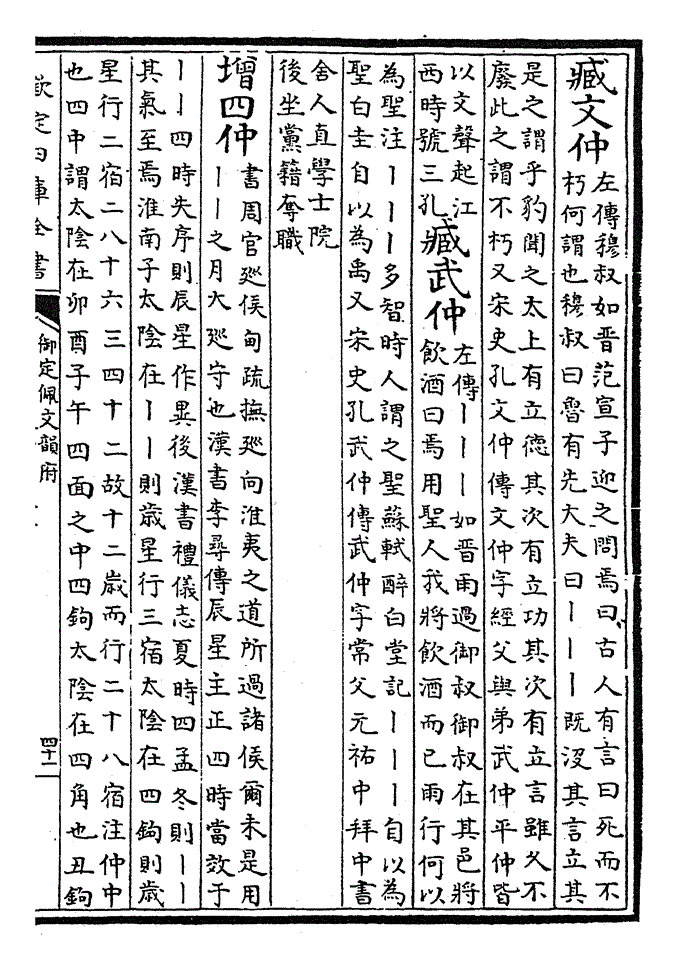 臧文仲
左傳穆叔如晉范宣子迎之問焉曰古人有言曰死而不
朽何謂也穆叔曰魯有先大夫曰丨丨丨既沒其言立其
是之謂乎豹聞之太上有立德其次有立功其次有立言雖久不
廢此之謂不朽又宋史孔文仲傳文仲字經父與弟武仲平仲皆
以文聲起江
西時號三孔
臧武仲
左傳丨丨丨如晉雨過御叔御叔在其邑將
飲酒曰焉用聖人我將飲酒而已雨行何以
為聖注丨丨丨多智時人謂之聖蘇軾醉白堂記丨丨丨自以為
聖白圭自以為禹又宋史孔武仲傳武仲字常父元祐中拜中書
舍人直學士院
後坐黨籍奪職
增四仲
書周官廵侯甸疏撫廵向淮夷之道所過諸侯爾未是用
丨丨之月大廵守也漢書李尋傳辰星主正四時當效于
丨丨四時失序則辰星作異後漢書禮儀志夏時四孟冬則丨丨
其氣至焉淮南子太陰在丨丨則歲星行三宿太陰在四鉤則歲
星行二宿二八十六三四十二故十二歲而行二十八宿注仲中
也四中謂太陰在卯酉子午四面之中四鉤太陰在四角也丑鉤
欽定四庫全書
御定佩文韻府
四十一